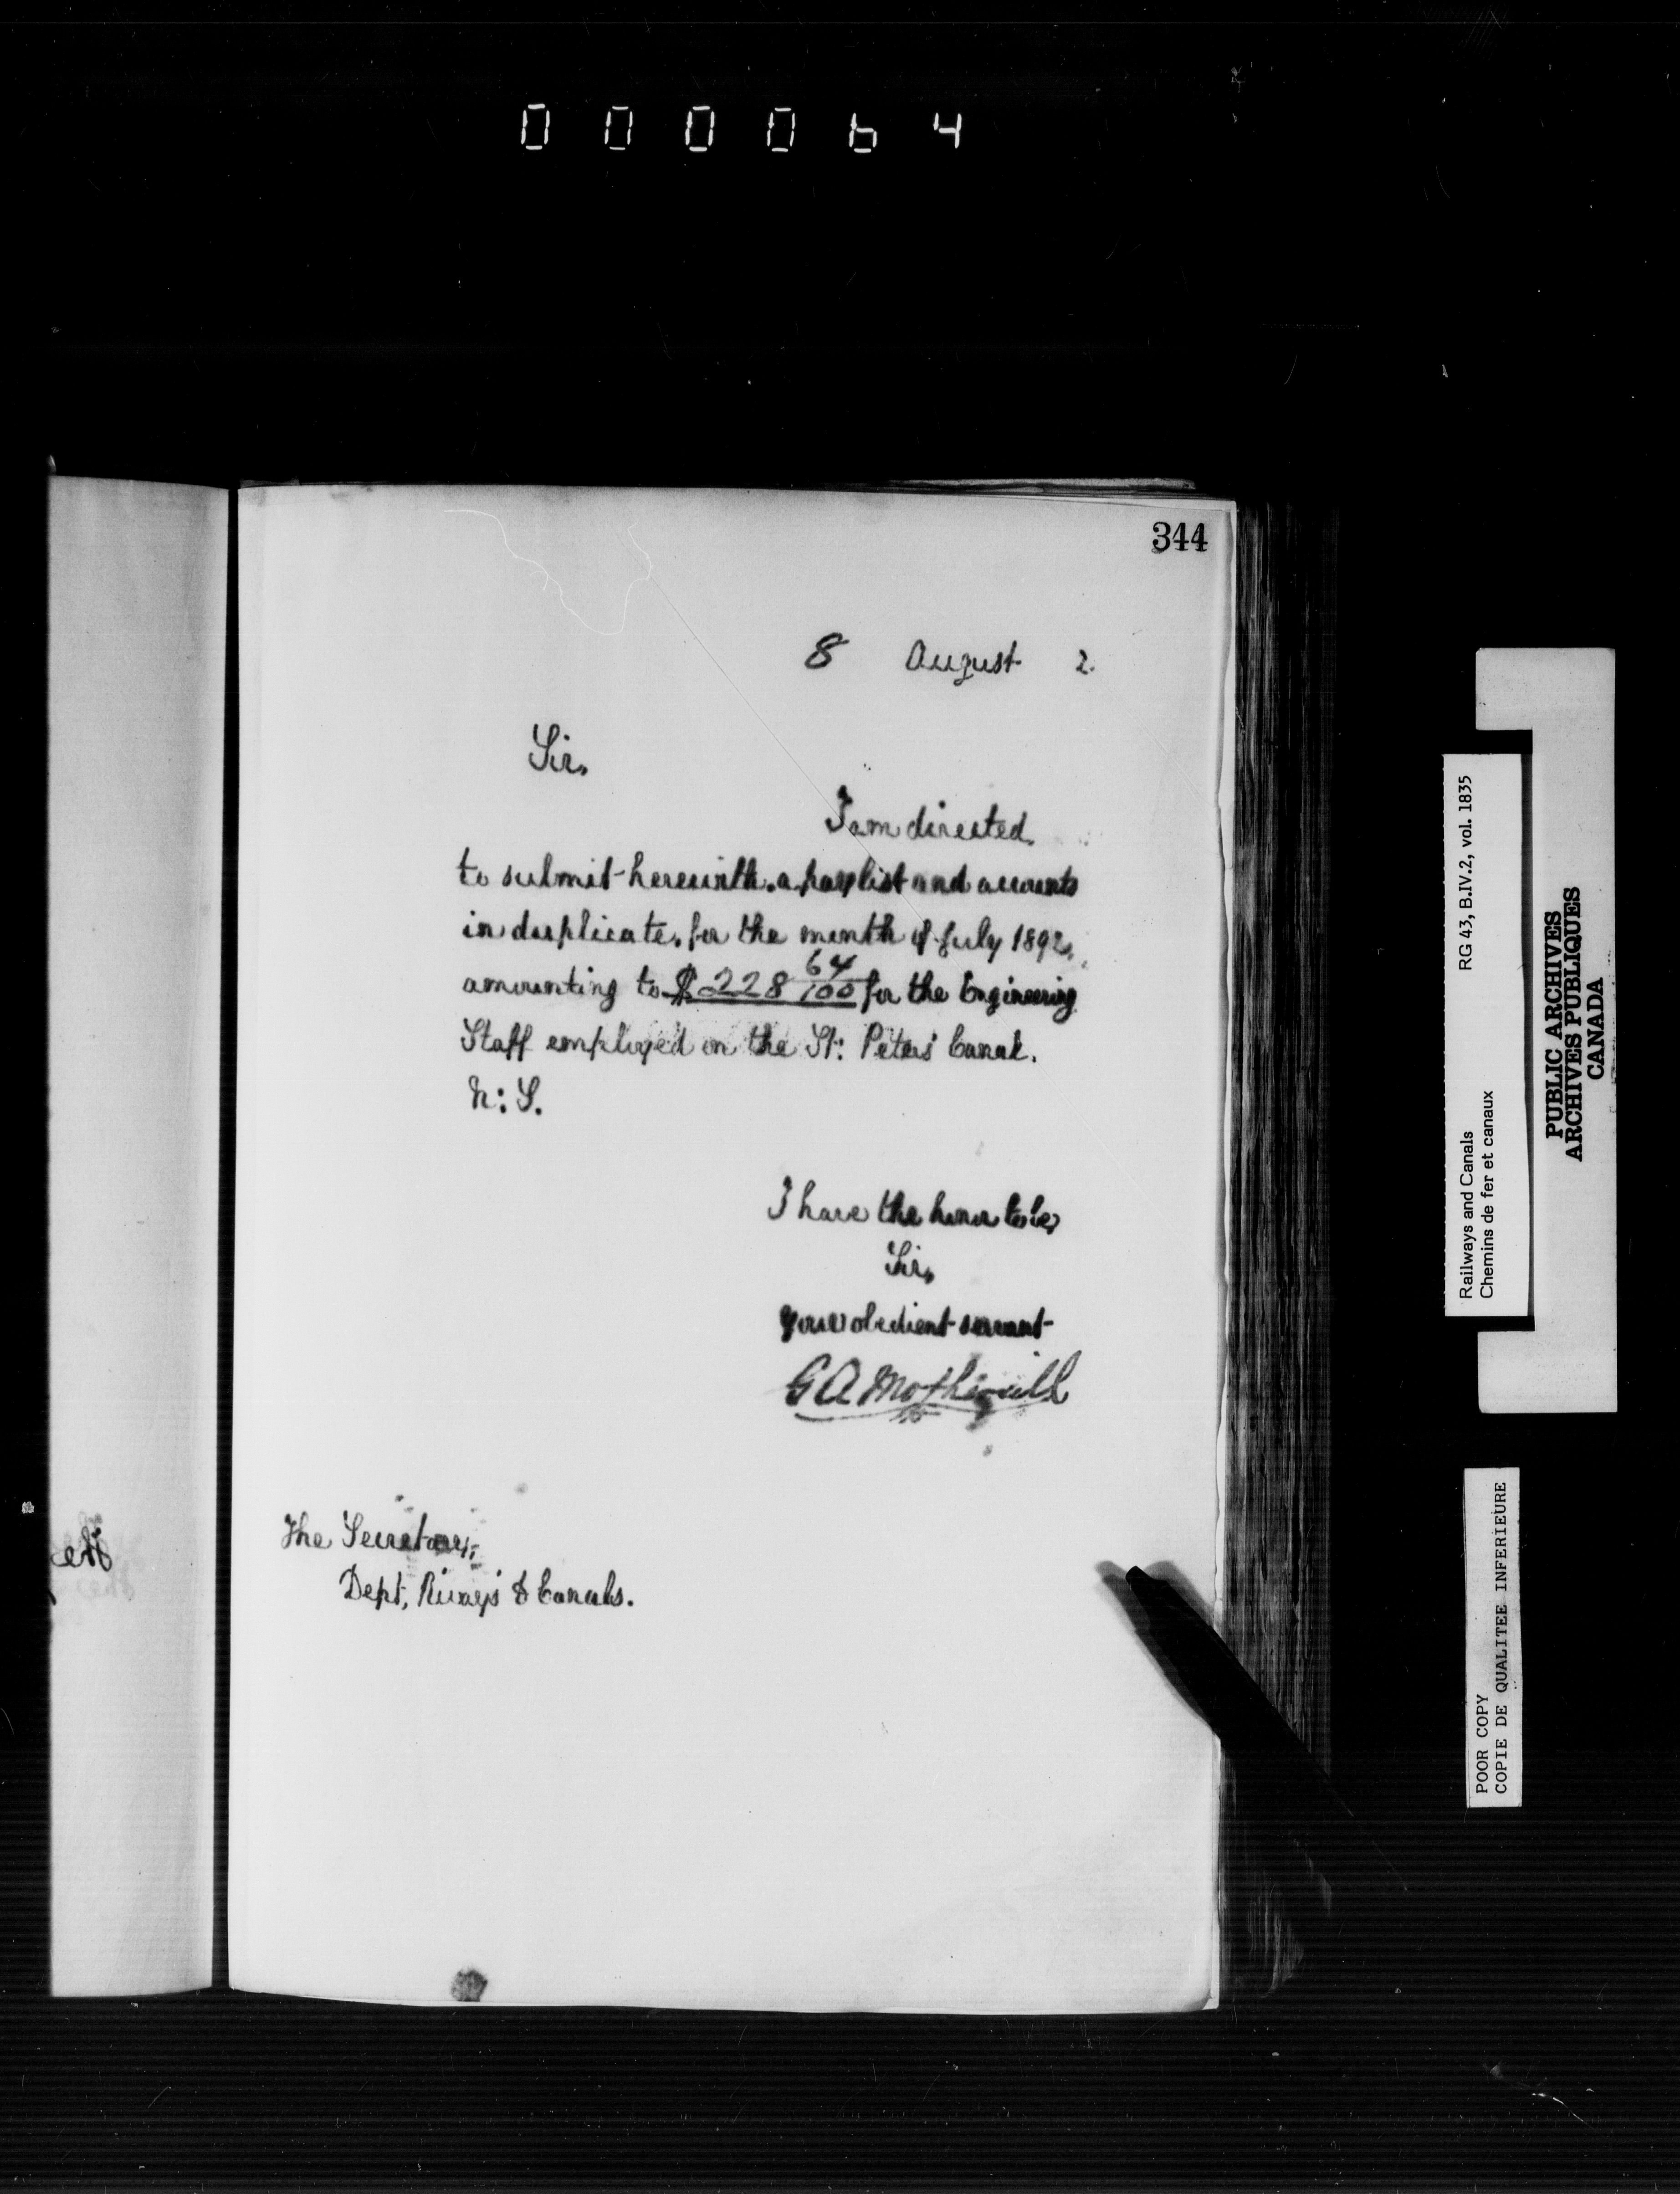 000064
344
8 August 2.
Sir,
I am directed
to submit herewith a paylist and accounts
in duplicate, for the month of July 1892,
amounting to $228 64/100 for the Engineering
Staff employed on the St: Peters' Canal.
N: S.
I have the honor to be,
Sir,
Your obedient servant
G A Mothersill
The Secretary,
Dept, R'ways & Canals.
Railways and Canals RG 43, B.IV.2, vol. 1835
Chemins de fer et canaux
PUBLIC ARCHIVES
ARCHIVES PUBLIQUES
CANADA
POOR COPY
COPIE DE QUALITEE INFERIEURE